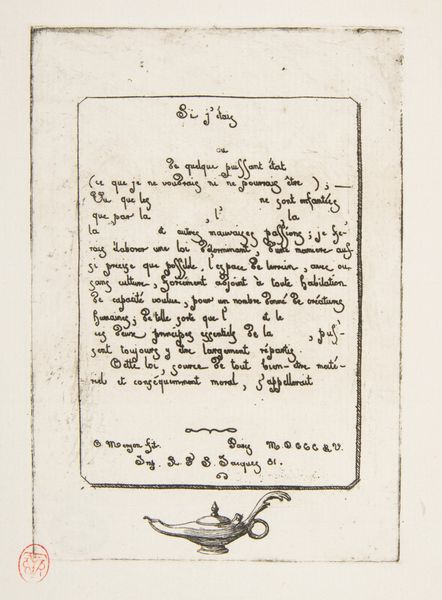 Si j'étais
ou
de quelque puissant état
(ce que je ne voudrais ni ne pourrais être) ; —
Vu que les ne sont enfantées
que par la , l' , la ,
la et autres mauvaises passions ; je fe-
rais élaborer une loi déterminant, d'une manière aus-
si précise que possible, l'espace de terrain, avec ou
sans culture, forcément adjoint à toute habitation
de capacité voulue, pour un nombre donné de créatures
humaines ; de telle sorte que l' et le
ces deux principes essentiels de la , puis-
sent toujours y être largement répartis
Cette loi, source de tout bien-être maté-
riel et conséquemment moral, s'appellerait
C. Meryon fit. Paris
Imp. R. N. S. Jacques 81.